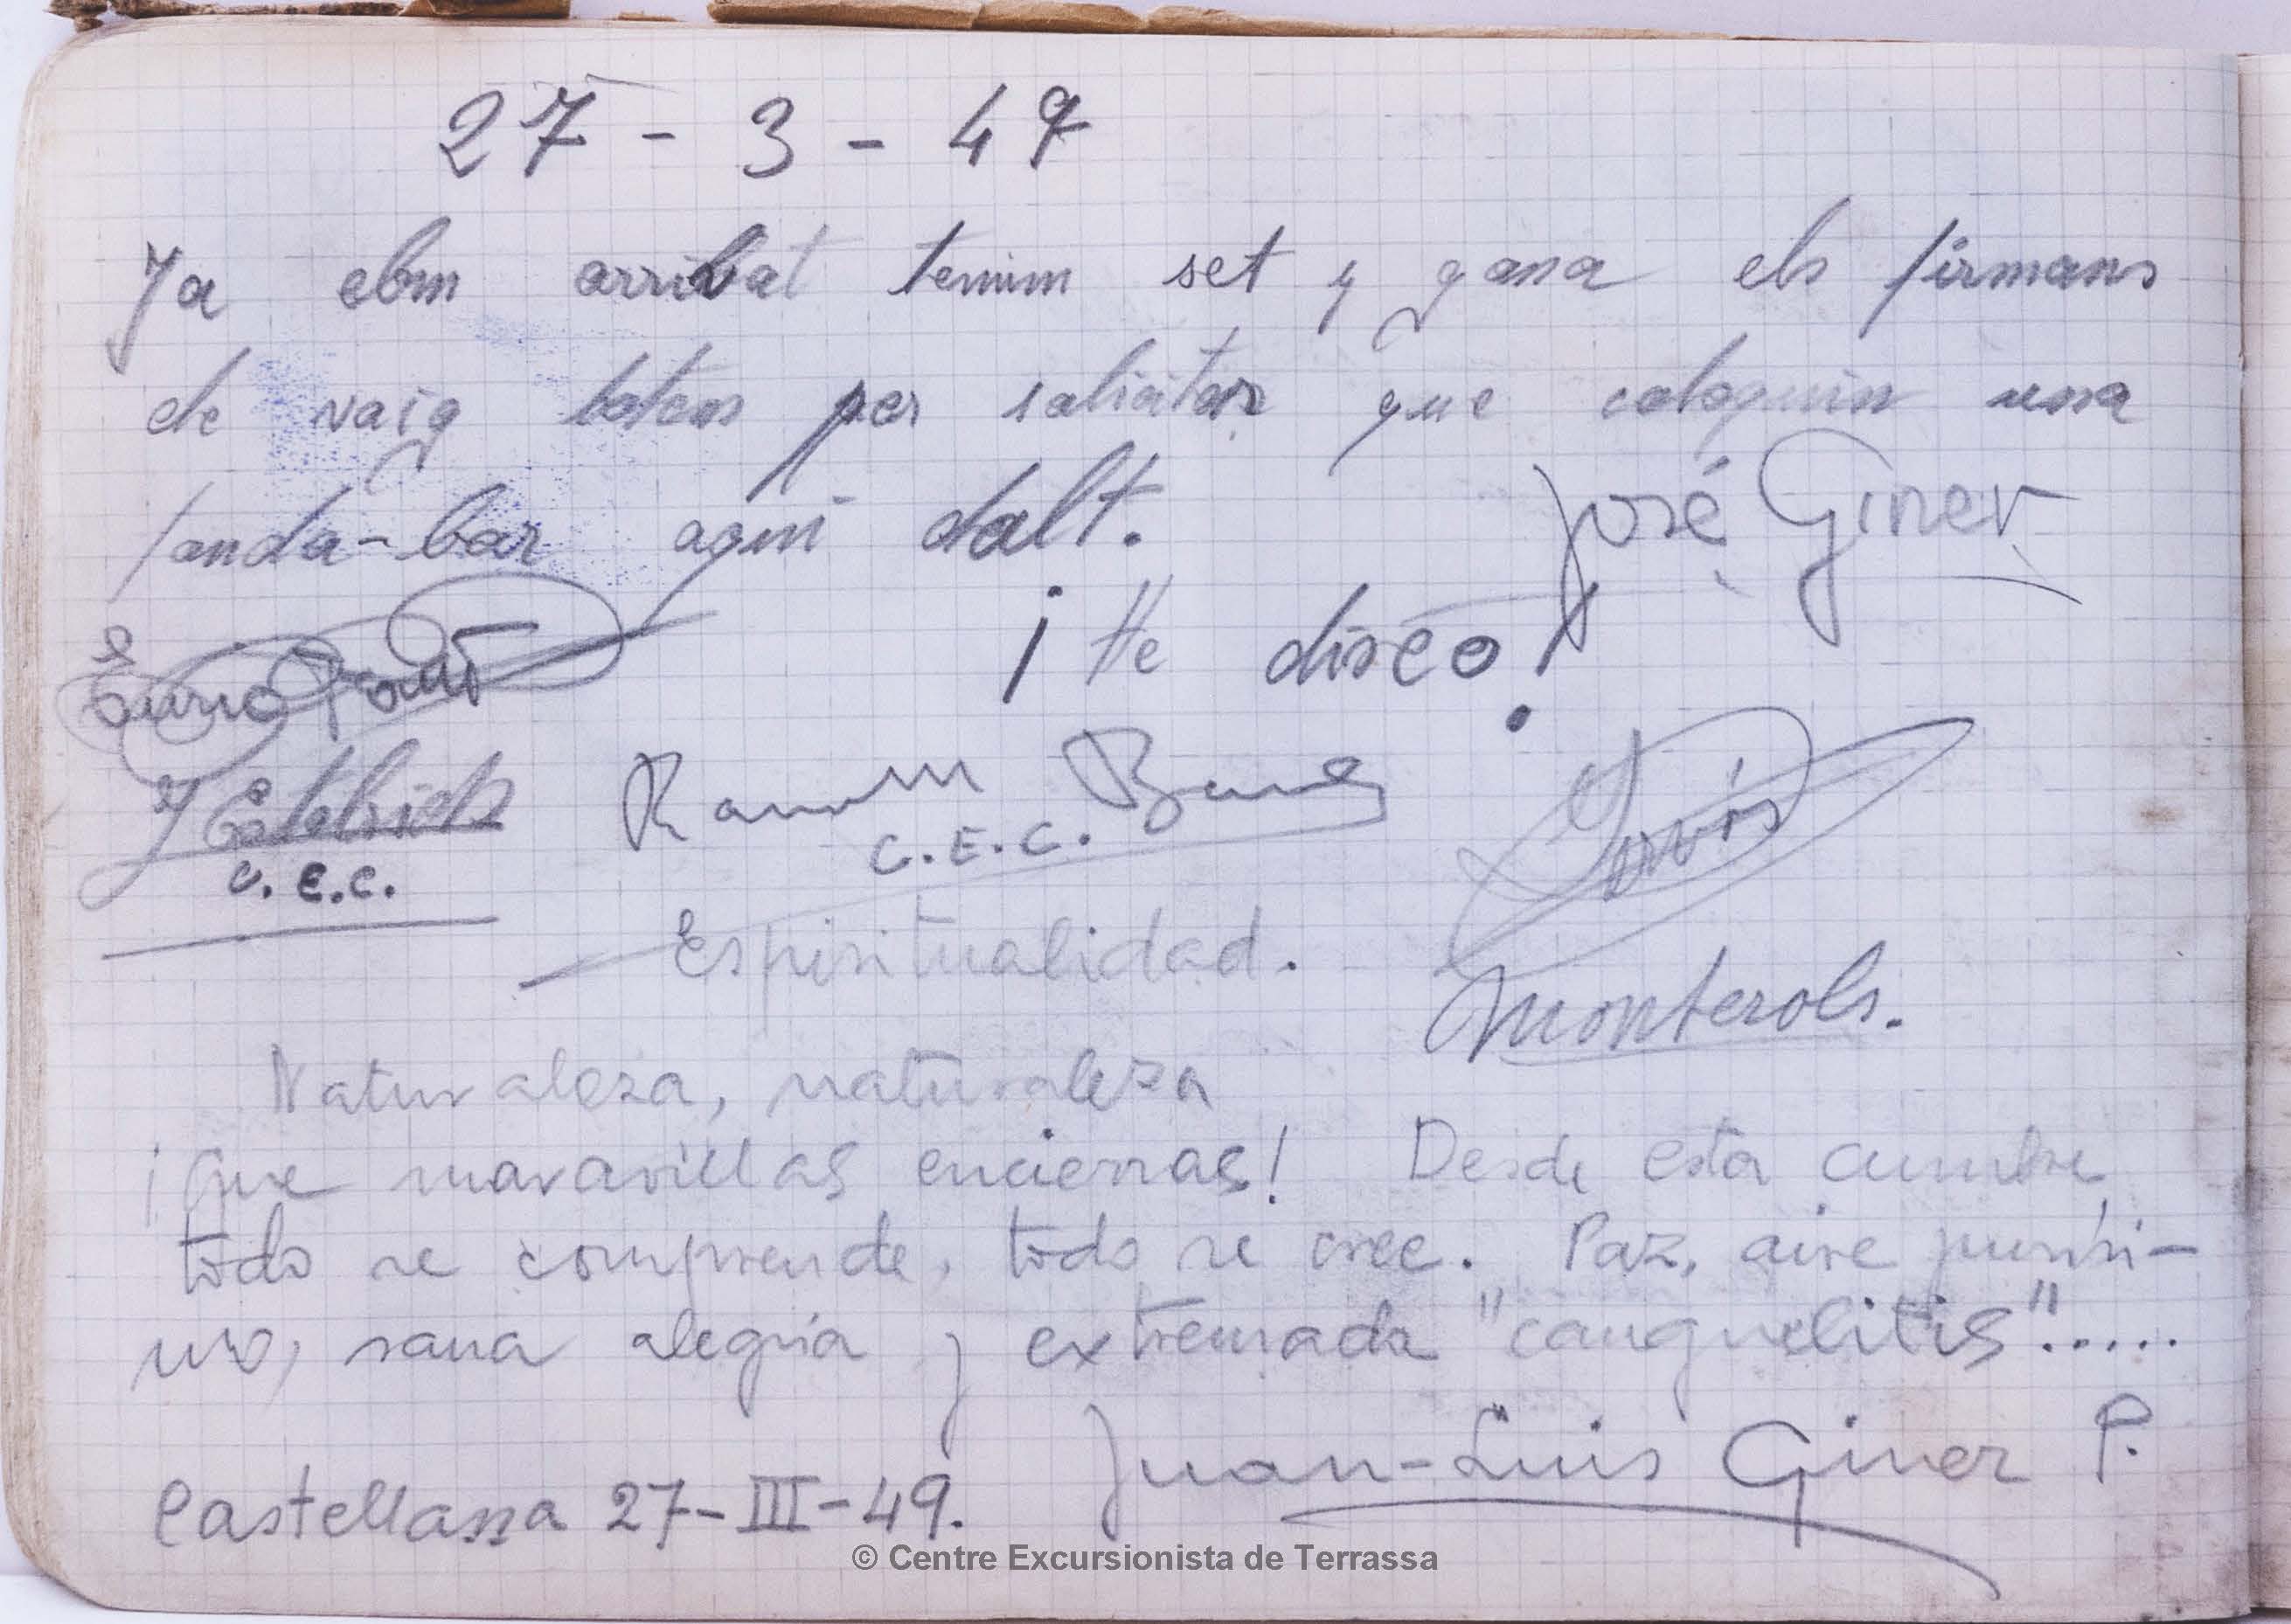 27 - 3 - 49
Ya ebm arribat tenim set y gana els firmans
de vaig botem per solicitar que coloquin una
fanda-bar aqui dalt.
José Giner
¡ He diseo!
J Estelrich
C.E.C.
Ramon
C.E.C.
Espiritualidad.
Monterols.
Naturaleza, naturaleza
¡Que maravillas encierras! Desde esta cumbre,
todo se comprende, todo se cree. Paz, aire purísi-
mo, sana alegría y extremada "canguelitis".....
Juan-Luis Giner P.
Castellassa 27-III-49.
© Centre Excursionista de Terrassa